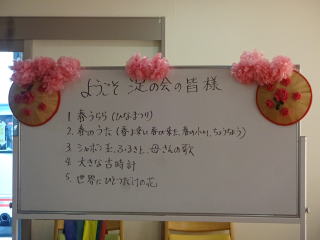 ようこそ 淀の会の皆様
1 春うらら(ひなまつり)
2. 春のうた(春よ来い 春が来た、春の小川、ちょうちょう)
3. シャボン玉、ふるさと、母さんの歌
4. 大きな古時計
5. 世界にひとつだけの花